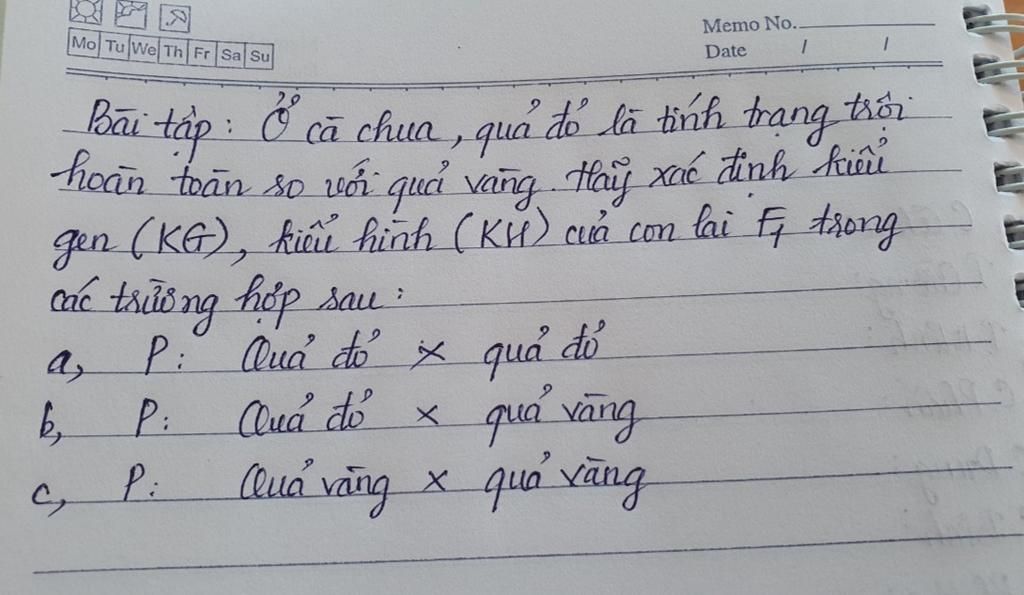 Memo No.
Mo Tu We Th Fr Sa Su
Date / /
Bài tập: Ở cà chua, quả đỏ là tính trạng trội
hoàn toàn so với quả vàng. Hãy xác định kiểu
gen (KG), kiểu hình (KH) của con lai F1 trong
các trường hợp sau:
a, P: Quả đỏ × quả đỏ
b, P: Quả đỏ × quả vàng
c, P: Quả vàng × quả vàng